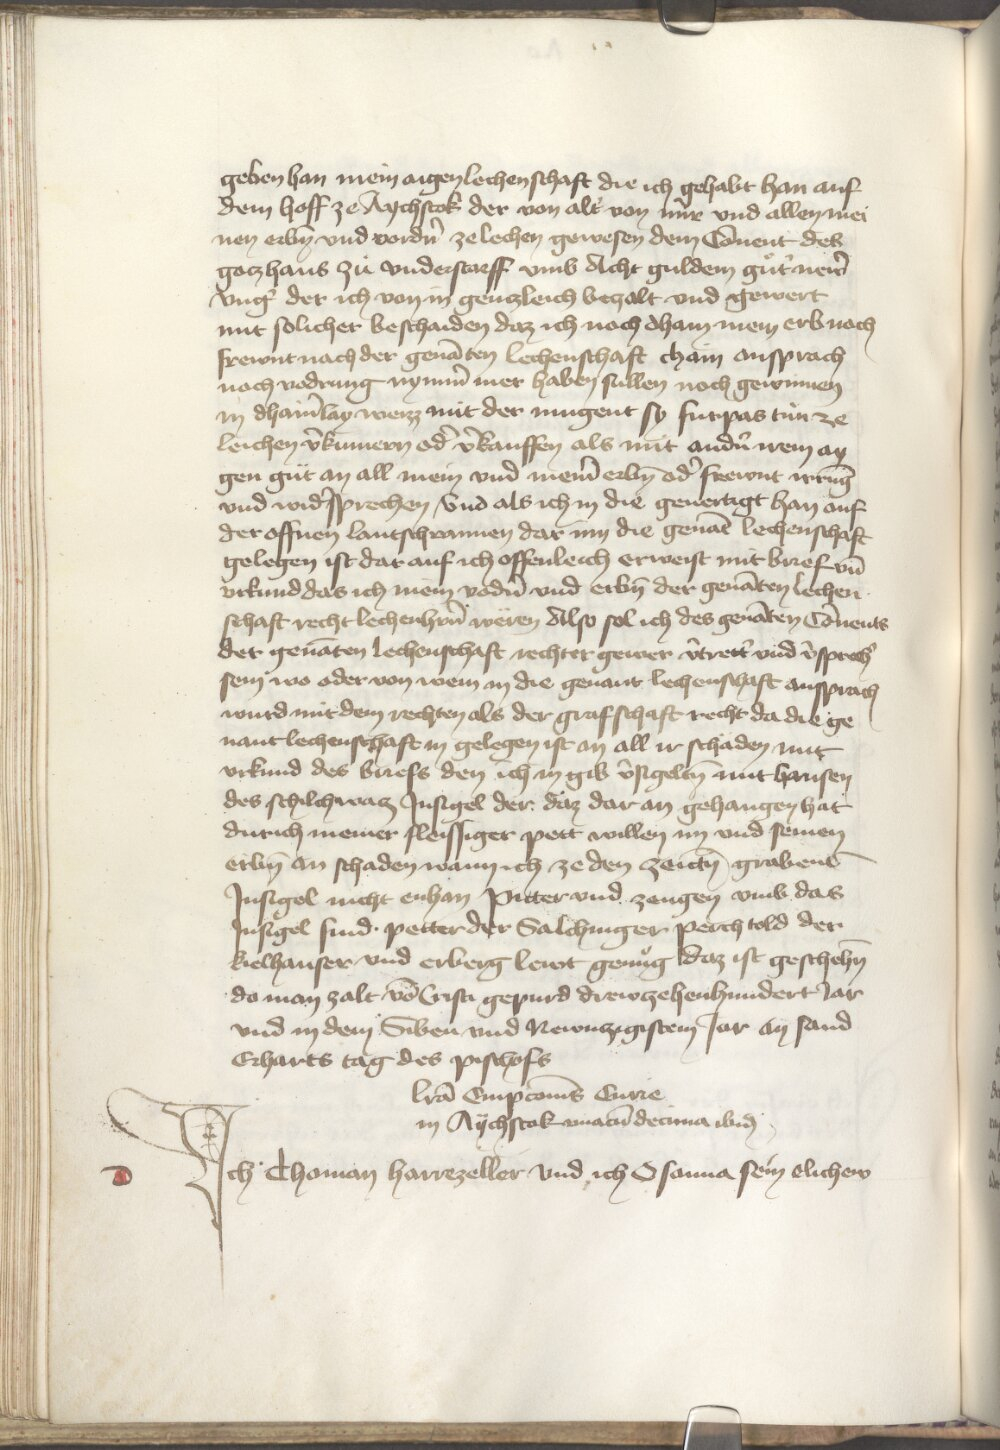 geben han mein aigen lechenschaft die ich gehabt han auf
dem hoff ze Aychstok der von alt̉ von mir vnd allen mei
nen erbn̄ vnd vordn̉ ze lechen gewesen dem Cōuent des
goczhaus zů vnderstorff vmb Acht guldem gůt̉ newr̉
vng̉ der ich von in genczleich beczalt vnd gewert
mit solicher beschaiden daz ich noch dhain mein erb noch
frewnt nach der genāten lechenschaft chain ansprach
noch vodrung nymm̉ mer haben sullen noch gewinnen
in dhainlay weizz mit der mugent sy furpas tůn ze
leichen v̉kumern od̉ v̉kauffen als mit andn̉ irem ay
gen gůt an all mein vnd mein̉ erbn̄ od̉ frewnt irrūg
vnd wid̉sprechen Vnd als ich in die geuertigt han auf
der offnen lantschrannen dar inn die genāt lechenschaft
gelegen ist dar auf ich offenleich erweist mit brief vn̄
vrkund das ich mein vodn̉ vnd erbn̄ der genāten lechen
schaft recht lechenhr̉n wëren Also sol ich des genāten Cōuents
der genāten lechenschaft rechter gewer v̉trett̉ vnd v̉sprech̉
sein wo oder von wem in die genant lechenschaft ansprach
wurd mit dem rechten als der grafschaft recht da die ge
nant lechenschaft in gelegen ist an all ir schaden mit
vrkund des briefs den ich in gib v̉sigeltn̄ mit hansen
des schilchwacz Insigel der daz dar an gehangen hat
durich meiner fleissiger pett willen im vnd seinen
erbn̄ an schaden wann ich ze den zeittn̄ grabens
Insigel nicht enhan Pitter vnd zeugen vmb das
Insigel sind petter der Salchinger perchtold der
kielhauser vnd erberg lewt genůg daz ist geschehn̄
do man zalt vō Cristi gepurd drewczehenhundert Jar
vnd in dem Siben vnd Newnczigistem Jar an sand
Erharts tag des pischofs
lrā Empcōnis Curie
in Aychstok vnacū decima ibid̄
Ich Thoman harrezeller vnd ich Osanna sein elichew